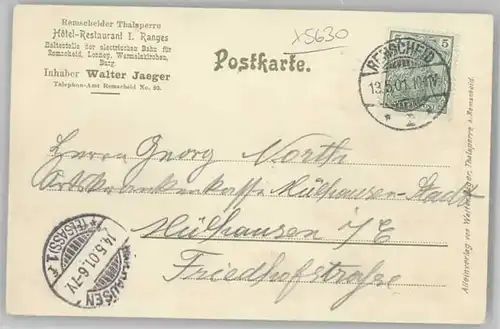 Remscheider Thalsperre
Hôtel-Restaurant I. Ranges
Haltestelle der electrischen Bahn für
Remscheid, Lennep, Wermelskirchen,
Burg.
Inhaber Walter Jaeger
Telephon-Amt Remscheid No. 93.
x5630
Postkarte.
5 5
REMSCHEID
13.5.01.
* 2
Herrn Georg North
Ortskrankenkasse Mülhausen-Stadt
Mülhausen i/E
Friedhofstraße
MÜLHAUSEN
*(ELSASS) 1.
14.5.01.6-7V.
Alleinverlag von Walter Jaeger, Thalsperre b. Remscheid.